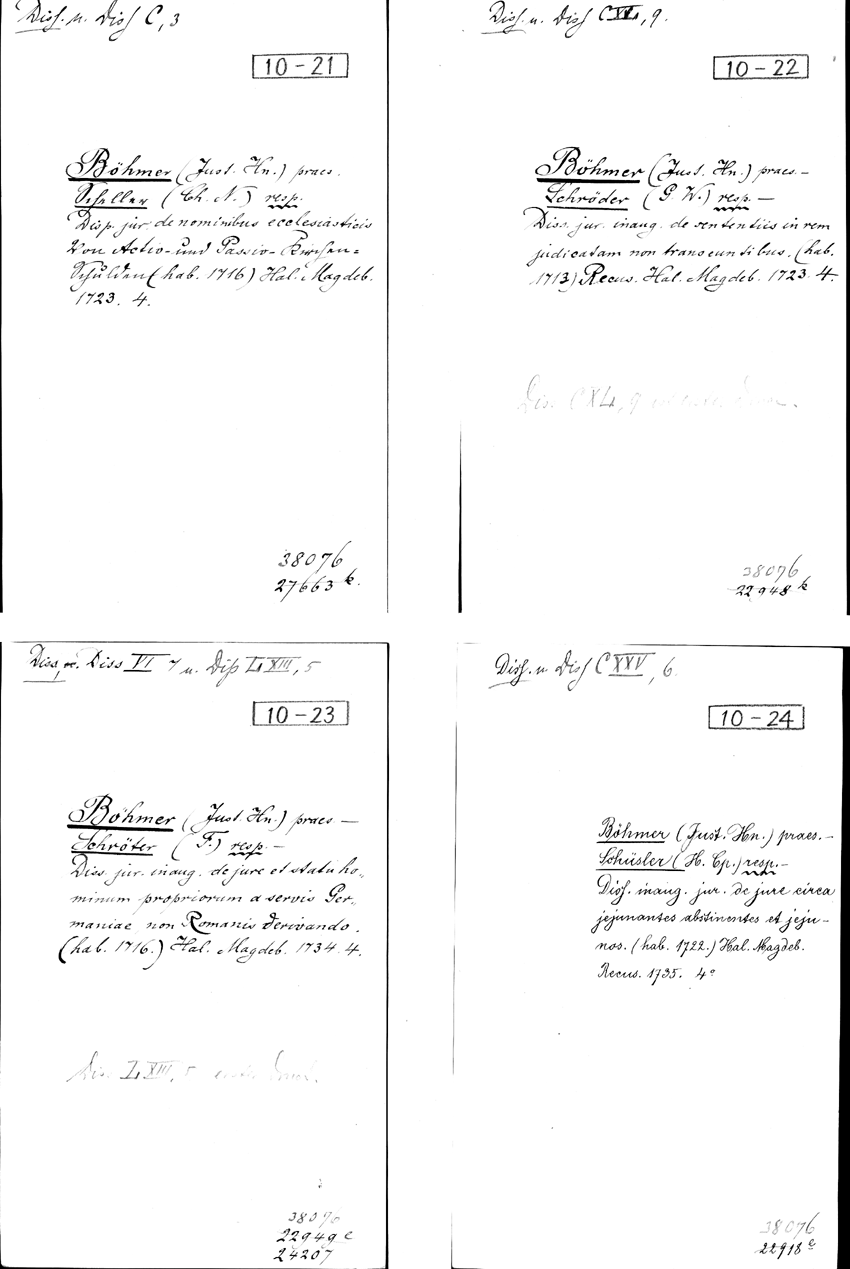 Diss. u. Diss C, 3
10-21
Böhmer (Just. Hn.) praes.
Scheller (Ch. N.) resp.
Disp. jur. de nominibus ecclesiasticis
Von Activ- und Passiv- Kirchen=
Schulden (hab. 1716) Hal. Magdeb.
1723. 4.
38076
27663 k.
Diss. u. Diss CXL, 9.
10-22
Böhmer (Just. Hn.) praes. –
Schröder (G. W.) resp. –
Diss. jur. inaug. de sententiis in rem
judicatam non transeuntibus. (hab.
1713) Recus. Hal. Magdeb. 1723 4.
Dis. CXL, 9
38076
22948 k
Diss. Diss VI 7 u. Diß LXIII, 5
10-23
Böhmer (Just. Hn.) praes –
Schröter (F.) resp. –
Diss. jur. inaug. de jure et statu ho„
minum propriorum a servis Ger„
maniae non Romanis derivando.
(hab. 1716.) Hal. Magdeb. 1734 4.
Dis. LXIII, 5
38096
22949 c
24207
Diss. u Diss CXXV, 6.
10-24
Böhmer (Just. Hn.) praes. –
Schüsler (H. Cp.) resp. –
Diss. inaug. jur. de jure circa
jejunantes abstinentes et jeju–
nos. (hab. 1722.) Hal. Magdeb.
Recus. 1735. 4°
38076
22918 e